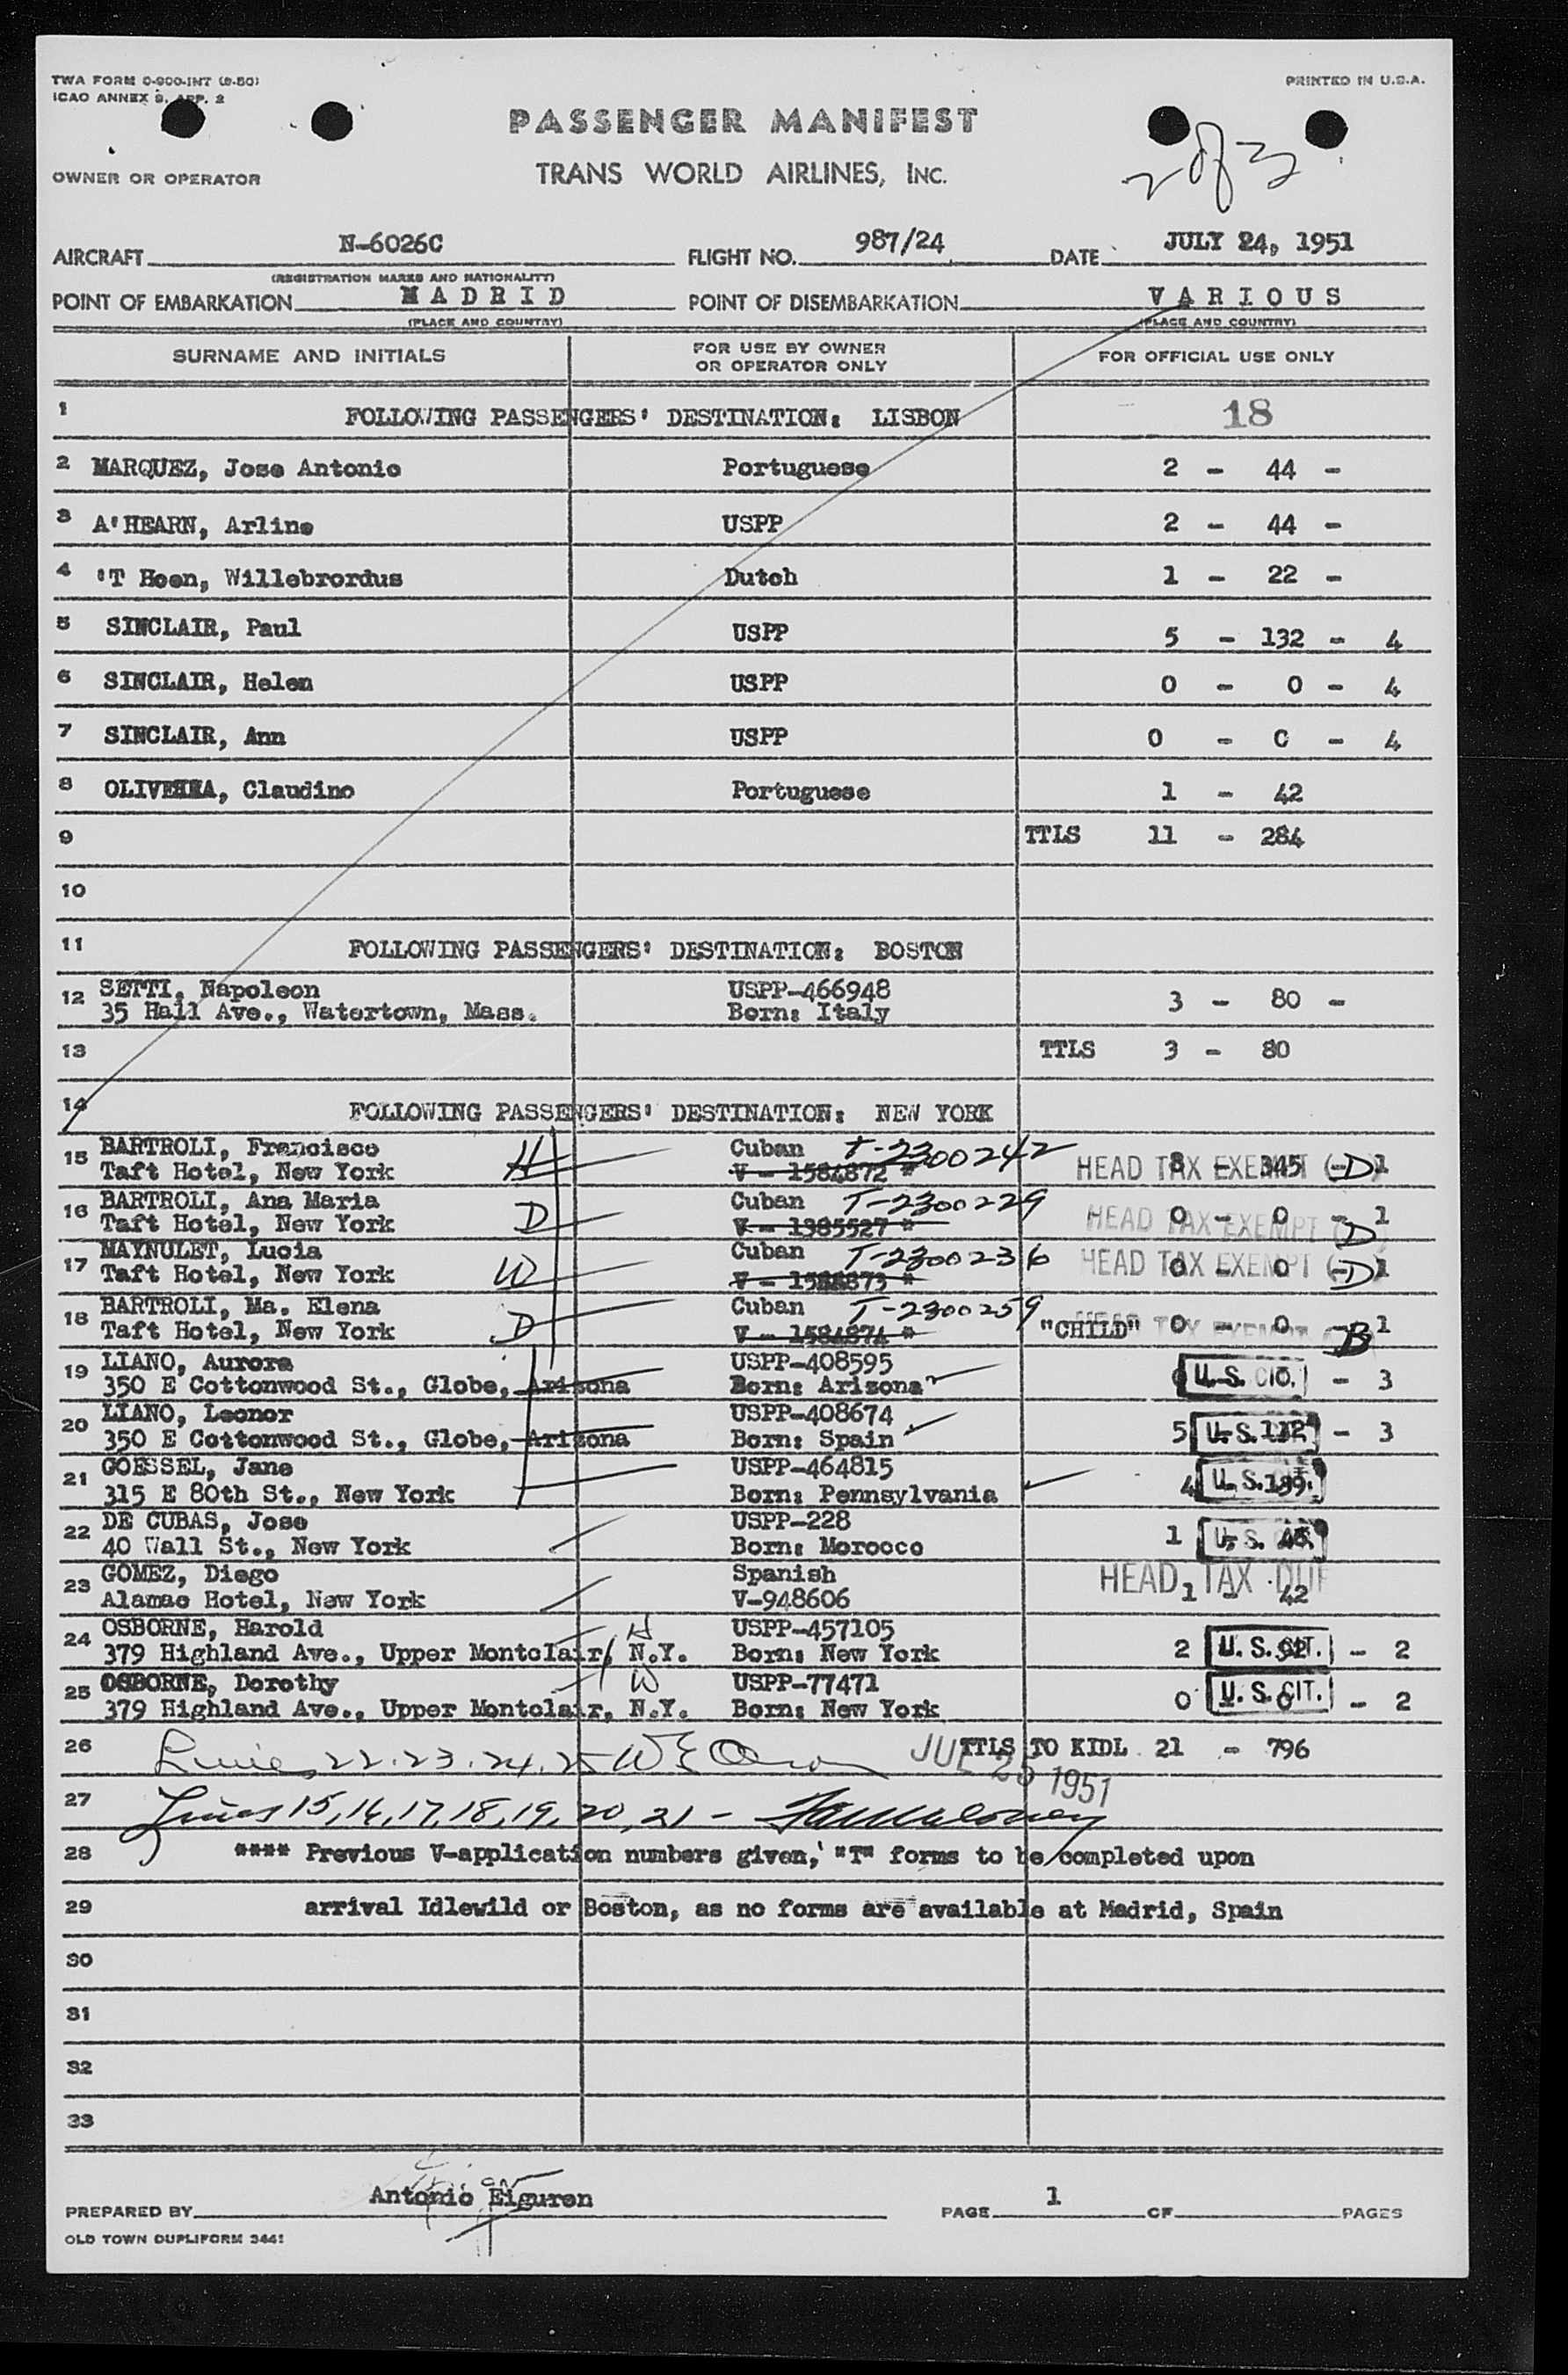 TWA FORM O-900-INT (8-50)
ICAO ANNEX 9, APP. 2
PRINTED IN U.S.A.
PASSENGER MANIFEST
2 of 3
OWNER OR OPERATOR
TRANS WORLD AIRLINES, INC.
AIRCRAFT N-6026C FLIGHT NO. 987/24 DATE JULY 24, 1951
(REGISTRATION MARKS AND NATIONALITY)
POINT OF EMBARKATION MADRID POINT OF DISEMBARKATION VARIOUS
(PLACE AND COUNTRY) (PLACE AND COUNTRY)
SURNAME AND INITIALS FOR USE BY OWNER OR OPERATOR ONLY FOR OFFICIAL USE ONLY
1 FOLLOWING PASSENGERS' DESTINATION: LISBON 18
2 MARQUEZ, Jose Antonio Portuguese 2 - 44 -
3 A'HEARN, Arline USPP 2 - 44 -
4 'T Hoen, Willebrordus Dutch 1 - 22 -
5 SINCLAIR, Paul USPP 5 - 132 - 4
6 SINCLAIR, Helen USPP 0 - 0 - 4
7 SINCLAIR, Ann USPP 0 - 0 - 4
8 Claudino Portuguese 1 - 42
9 TTLS 11 - 284
10
11 FOLLOWING PASSENGERS' DESTINATION: BOSTON
12 SETTI, Napoleon USPP-466948 3 - 80 -
35 Hall Ave., Watertown, Mass. Born: Italy
13 TTLS 3 - 80
14 FOLLOWING PASSENGERS' DESTINATION: NEW YORK
15 BARTROLI, Francisco H Cuban T-2300242
Taft Hotel, New York V - 1584872 * HEAD TAX EXEMPT 8 - 345 - 1 (D)
16 BARTROLI, Ana Maria D Cuban T-2300229
Taft Hotel, New York V - 1385527 * HEAD TAX EXEMPT 0 - 0 - 1 (D)
17 MAYNULET, Lucia W Cuban T-2300236
Taft Hotel, New York V - 1584873 * HEAD TAX EXEMPT 0 - 0 - 1 (D)
18 BARTROLI, Ma. Elena D Cuban T-2300259
Taft Hotel, New York V - 1584874 * "CHILD" HEAD TAX EXEMPT 0 - 0 - 1 B
19 LIANO, Aurora USPP-408595
350 E Cottonwood St., Globe, Arizona Born: Arizona U.S. CIT. - 3
20 LIANO, Leonor USPP-408674
350 E Cottonwood St., Globe, Arizona Born: Spain 5 U.S. - 3
21 GOESSEL, Jane USPP-464815
315 E 80th St., New York Born: Pennsylvania 4 U.S.
22 DE CUBAS, Jose USPP-228
40 Wall St., New York Born: Morocco 1 U.S.
23 GOMEZ, Diego Spanish HEAD TAX DUE
Alamac Hotel, New York V-948606 1 - 42
24 OSBORNE, Harold H USPP-457105
379 Highland Ave., Upper Montclair, N.Y. Born: New York 2 U.S. CIT. - 2
25 OSBORNE, Dorothy W USPP-77471
379 Highland Ave., Upper Montclair, N.Y. Born: New York 0 U.S. CIT. 0 - 2
26 Lines 22.23.24.25 W E TTLS TO KIDL 21 - 796
JUL 25 1951
27 Lines 15,16,17,18,19,20,21 -
28 **** Previous V-application numbers given, "T" forms to be completed upon
29 arrival Idlewild or Boston, as no forms are available at Madrid, Spain
30
31
32
33
PREPARED BY Antonio Eiguren PAGE 1 OF PAGES
OLD TOWN DUPLIFORM 3441